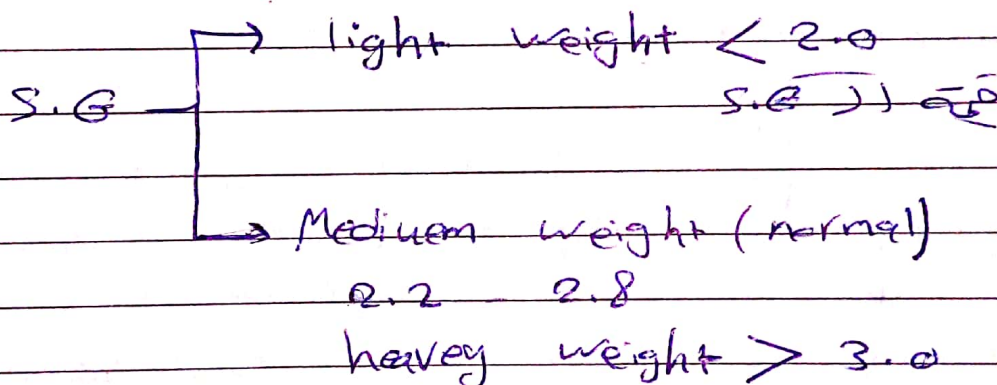 light weight < 2.0
S.G
S.G قيمة ال
Mediuem weight (normal)
2.2 - 2.8
heavey weight > 3.0